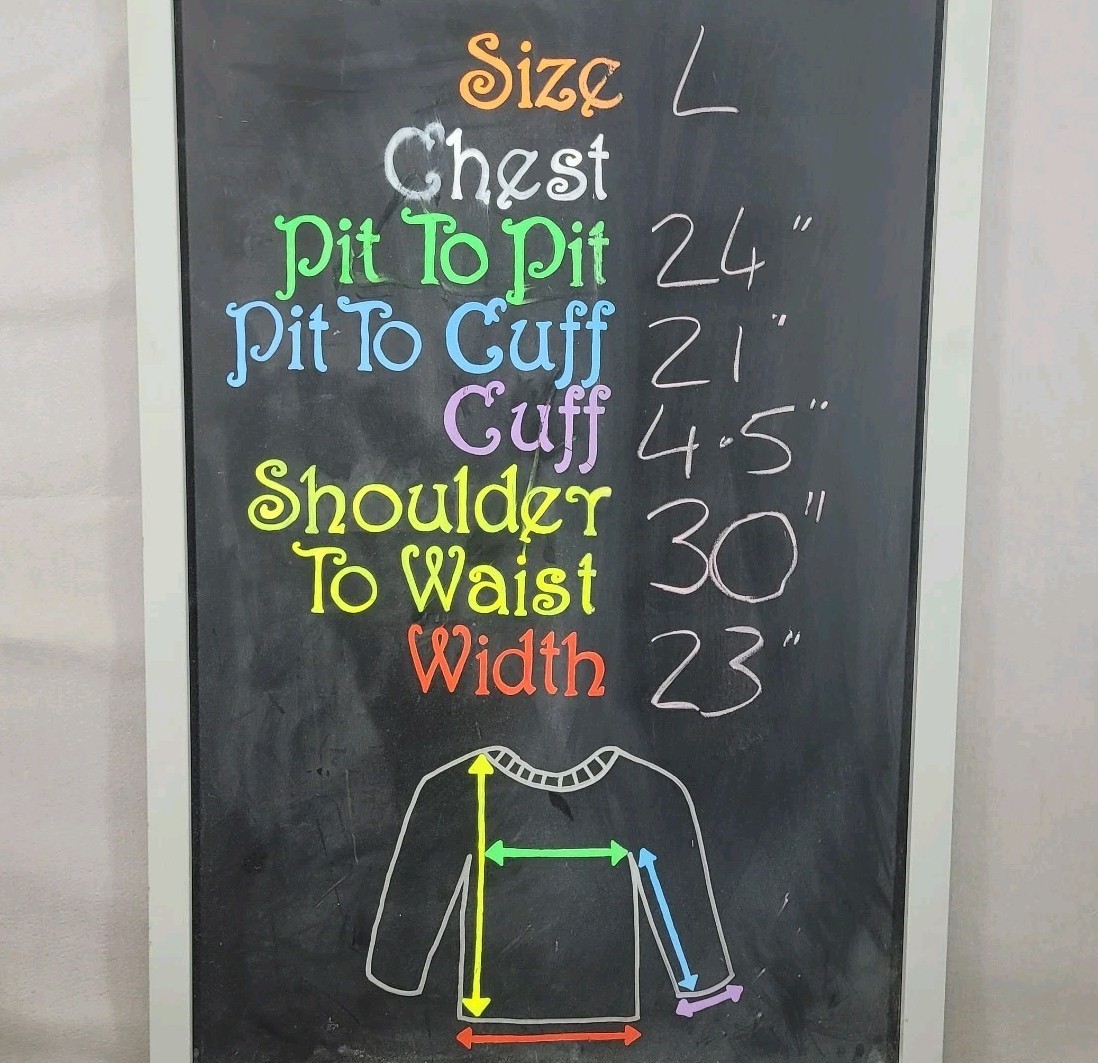 Size L
Chest
Pit To Pit 24"
Pit To Cuff 21"
Cuff 4.5"
Shoulder
To Waist 30"
Width 23"